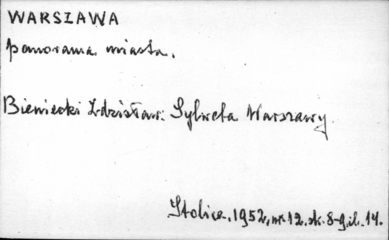 WARSZAWA
panorama miasta.
Bieniecki Zdzisław: Sylweta Warszawy
Stolica, 1952, nr 12. st. 8-9, il. 14.